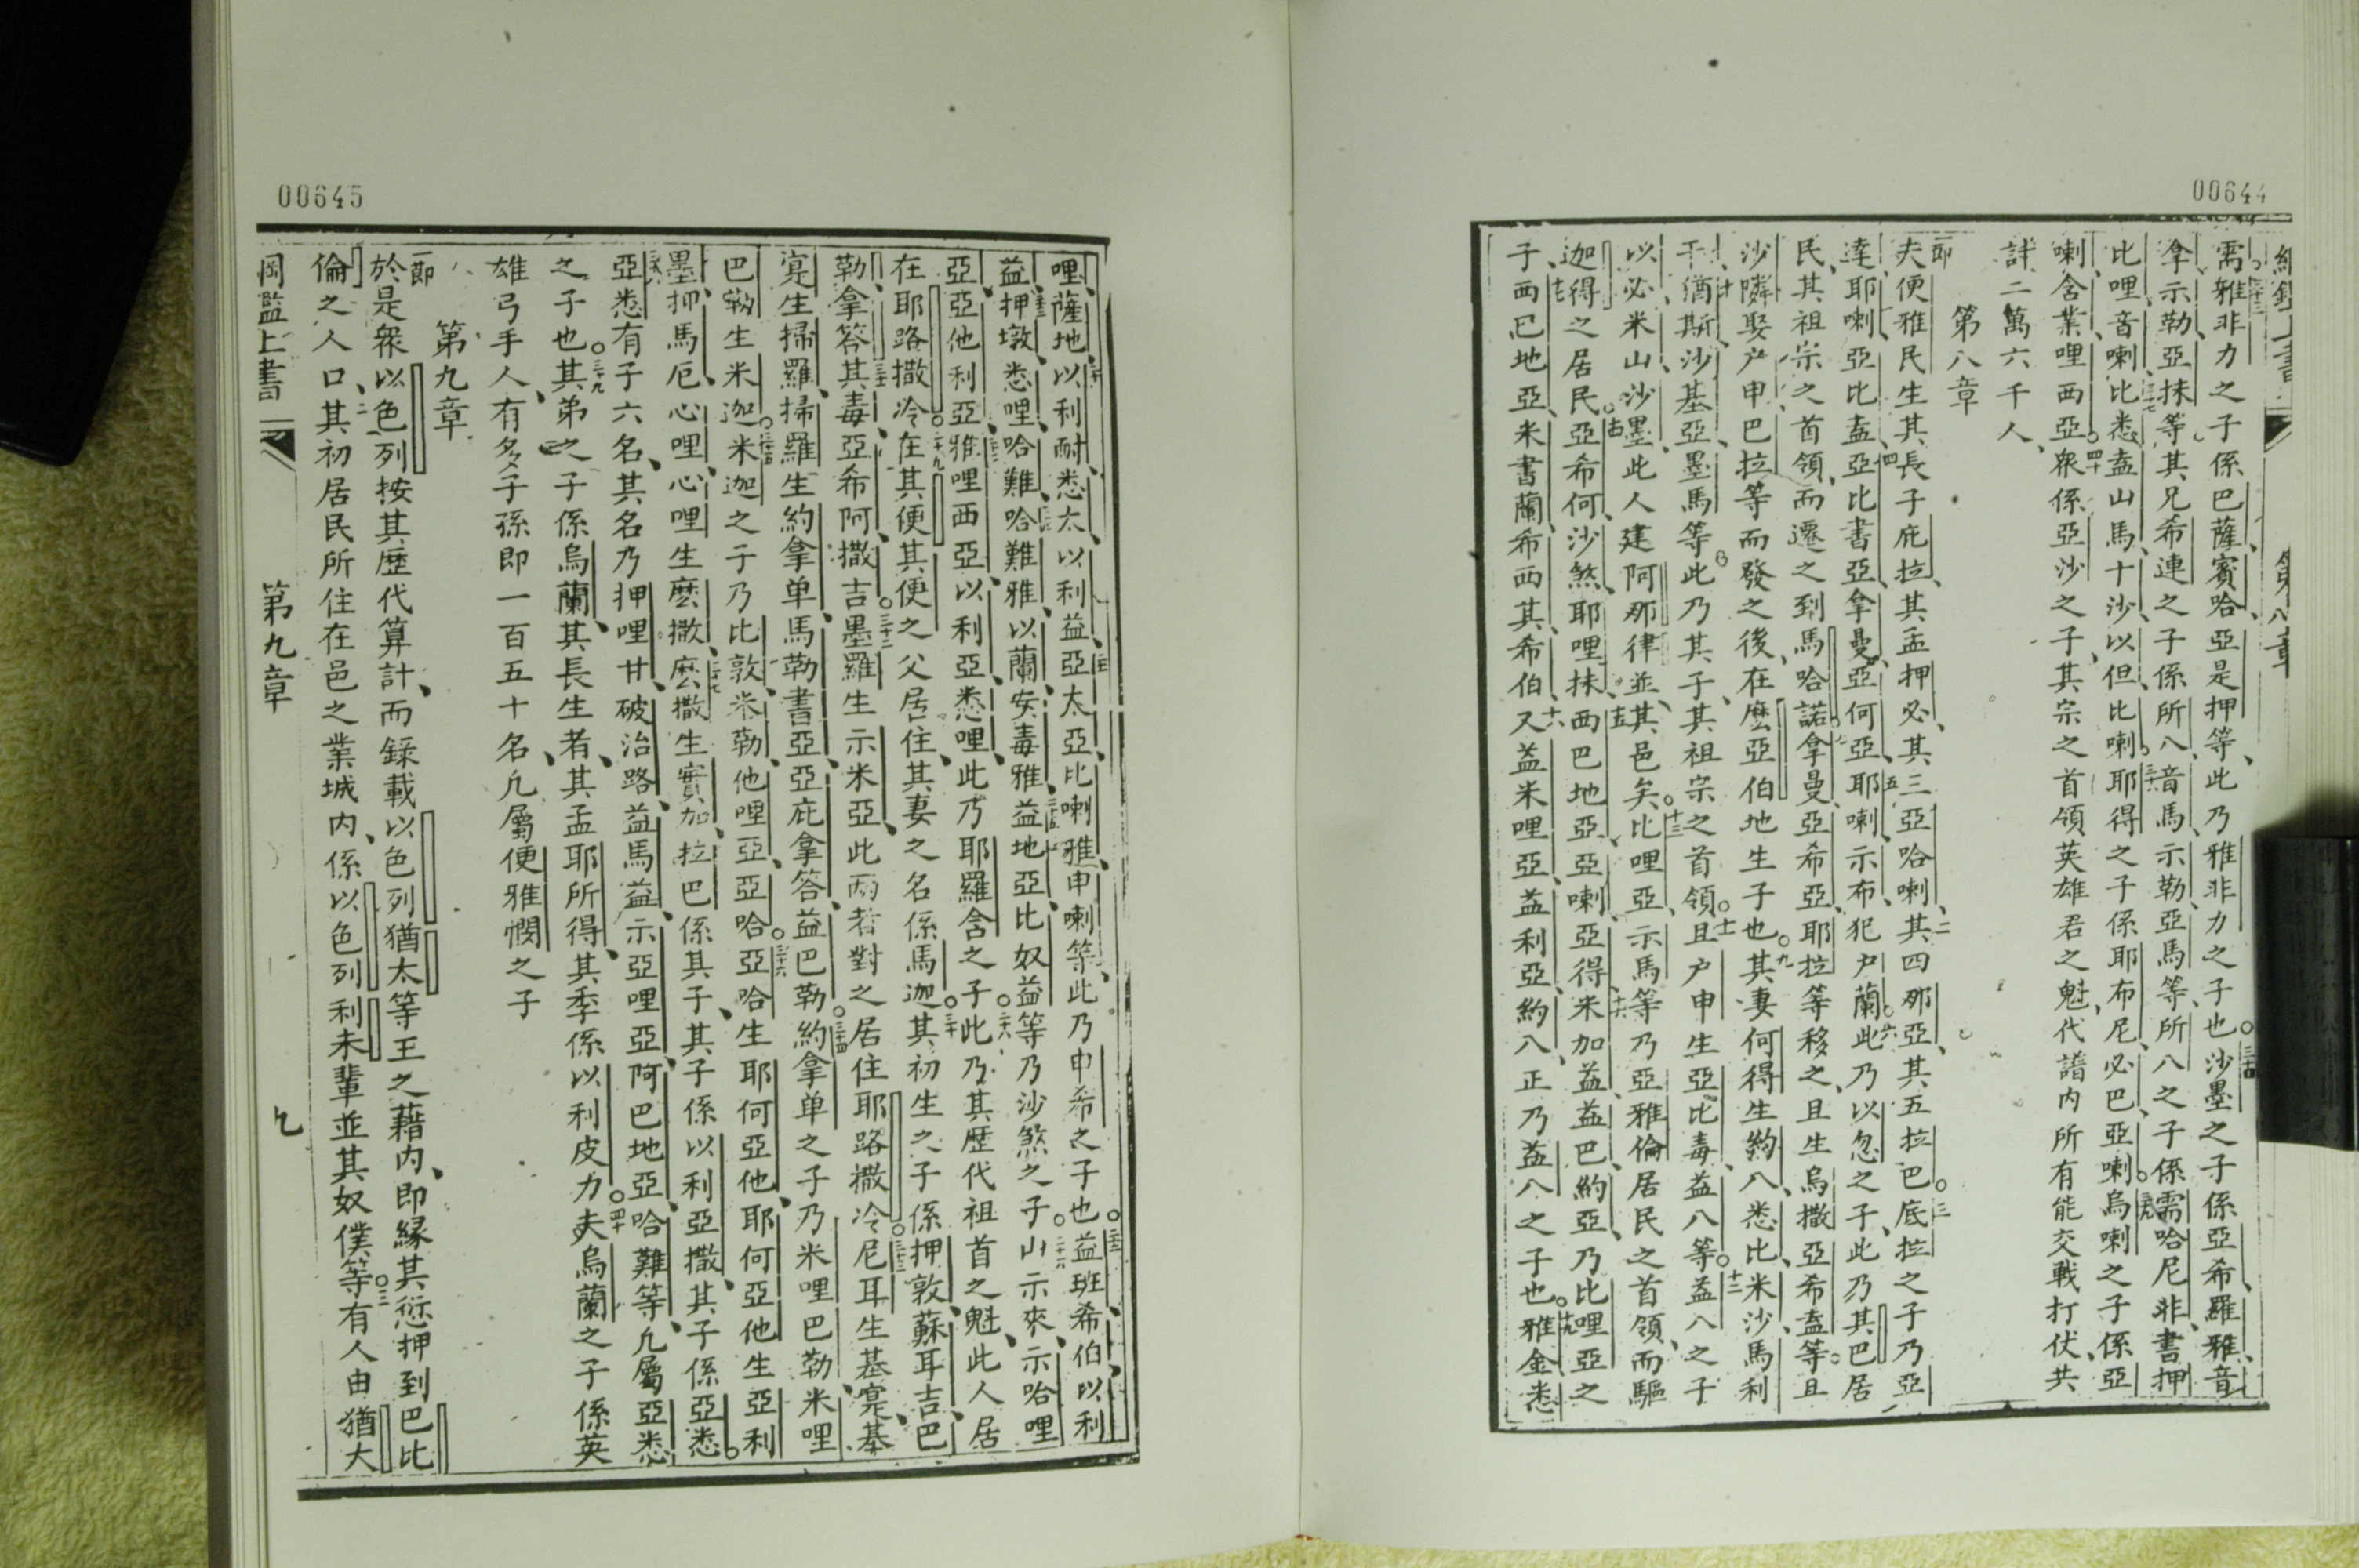 00644
需雅非力之子係巴薩賓哈亞是押等此乃雅非力之子也沙墨之子係亞希羅雅音
拿示勒亞抹等其兄希連之子係所八音馬示勒亞馬等所八之子係需哈尼非書押
比哩音喇比悉盍山馬十沙以但比喇耶得之子係耶布尼必巴亞喇烏喇之子係亞
喇含業哩西亞衆係亞沙之子其宗之首領英雄君之魁代譜內所有能交戰打伏共
計二萬六千人
第八章
一節 夫便雅民生其長子庇拉其孟押必其三亞哈喇其四那亞其五拉巴底拉之子乃亞
達耶喇亞比盍亞比書亞拿曼亞何亞耶喇示布犯户蘭此乃以忽之子此乃其巴居
民其祖宗之首領而遷之到馬哈諾拿曼亞希亞耶拉等移之且生烏撒亞希盍等且
沙隣娶户申巴拉等而發之後在麽亞伯地生子也其妻何得生約八悉比米沙馬利
干酋斯沙基亞墨馬等此乃其子其祖宗之首領且户申生亞比毒益八等益八之子
以必米山沙墨此人建阿那律並其邑矣比哩亞示馬等乃亞雅倫居民之首領而驅
迦得之居民亞希何沙煞耶哩抹西巴地亞亞喇亞得米加益益巴約亞乃比哩亞之
子西巴地亞米書蘭希西其希伯又益米哩亞益利亞約八正乃益八之子也雅金悉
00645
哩薩地以利耐悉太以利益亞太亞比喇雅申喇等此乃申希之子也益班希伯以利
益押墩悉哩哈難哈難雅以蘭安毒雅益地亞比奴益等乃沙煞之子山示來示哈哩
亞亞他利亞雅哩西亞以利亞悉哩此乃耶羅含之子此乃其歷代祖首之魁此人居
在耶路撒冷在其便其便之父居住其妻之名係馬迦其初生之子係押敦蘇耳吉巴
勒拿答其毒亞希阿撒吉墨羅生示米亞此兩者對之居住耶路撒冷尼耳生基寔基
寔生掃羅掃羅生約拿单馬勒書亞亞庇拿答益巴勒約拿单之子乃米哩巴勒米哩
巴勒生米迦米迦之子乃比敦米勒他哩亞亞哈亞哈生耶何亞他耶何亞他生亞利
墨抑馬厄心哩心哩生麽撒麽撒生賓加拉巴係其子其子係以利亞撒其子係亞悉
亞悉有子六名其名乃押哩甘破治路益馬益示亞哩亞阿巴地亞哈難等凢屬亞悉
之子也其弟之子係烏蘭其長生者其孟耶所得其季係以利皮力夫烏蘭之子係英
雄弓手人有多子孫即一百五十名凢屬便雅憫之子
第九章
一節 於是衆以色列按其歷代算計而錄載以色列猶太等王之藉內即緣其愆押到巴比
倫之人口其初居民所住在邑之業城內係以色列利未輩並其奴僕等有人由猶大
綱鑑上書 第九章 九